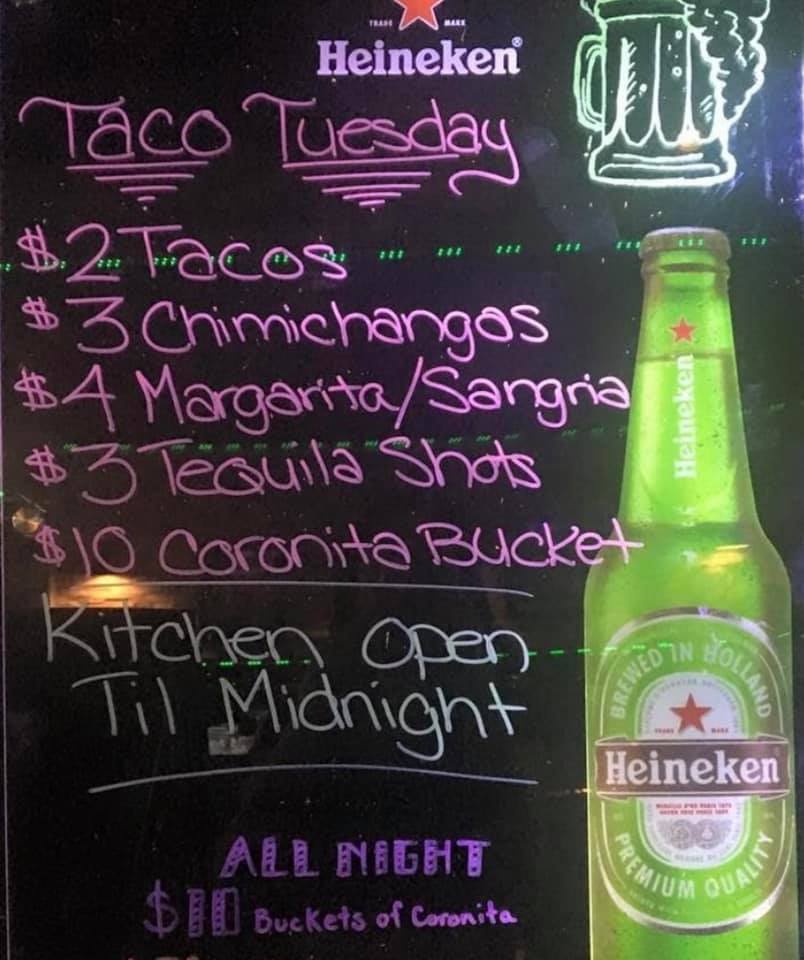 TRADE MARK
Heineken®
Taco Tuesday
$2 Tacos
$3 Chimichangas
$4 Margarita/Sangria
$3 Tequila Shots
$10 Coronita Bucket
Kitchen Open
Til Midnight
ALL NIGHT
$10 Buckets of Coronita
Heineken
BREWED IN HOLLAND
TRADE MARK
Heineken
PREMIUM QUALITY